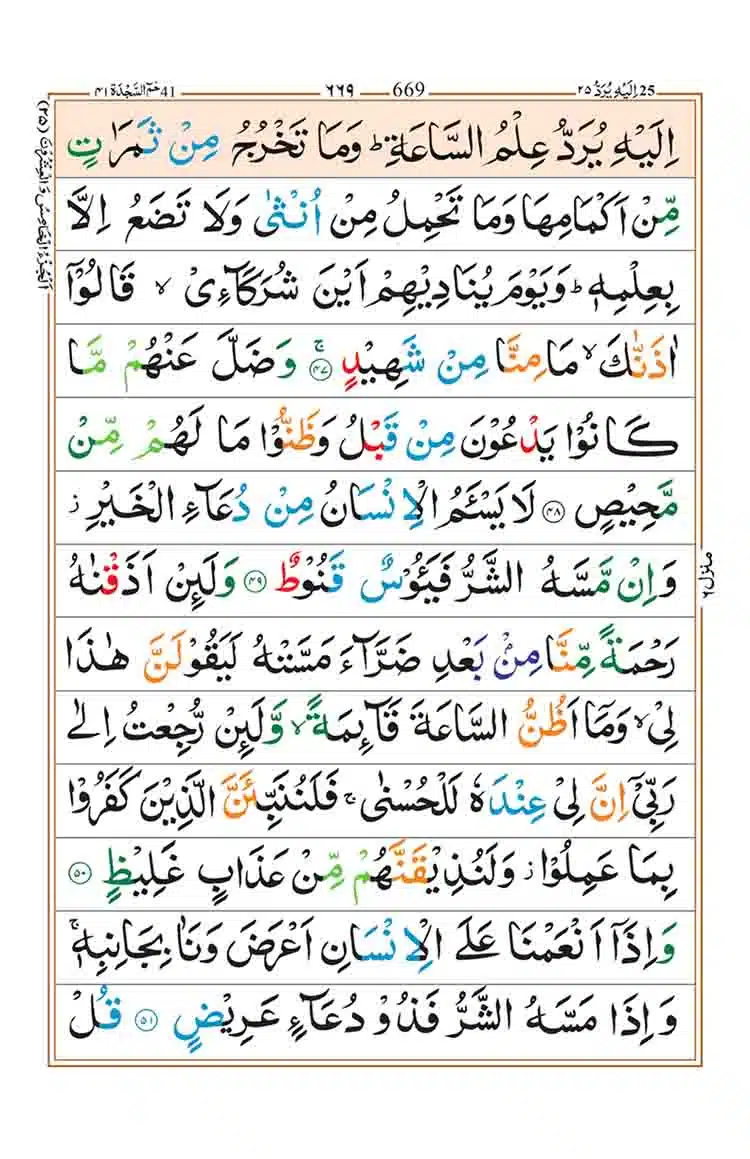 25 اِلَيْهِ يُرَدُّ ٢٥
669 ٦٦٩
41 حٰمٓ السَّجْدَة ٤١
اِلَيْهِ يُرَدُّ عِلْمُ السَّاعَةِ ؕ وَمَا تَخْرُجُ مِنْ ثَمَرٰتٍ
مِّنْ اَكْمَامِهَا وَمَا تَحْمِلُ مِنْ اُنْثٰى وَلَا تَضَعُ اِلَّا
بِعِلْمِهٖ ؕ وَيَوْمَ يُنَادِيْهِمْ اَيْنَ شُرَكَآءِیْ ۙ قَالُوْۤا
اٰذَنّٰكَ ۙ مَا مِنَّا مِنْ شَهِيْدٍ ۚ ﴿٤٧﴾ وَضَلَّ عَنْهُمْ مَّا
كَانُوْا يَدْعُوْنَ مِنْ قَبْلُ وَظَنُّوْا مَا لَهُمْ مِّنْ
مَّحِيْصٍ ﴿٤٨﴾ لَا يَسْـَٔمُ الْاِنْسَانُ مِنْ دُعَآءِ الْخَيْرِ ز
وَاِنْ مَّسَّهُ الشَّرُّ فَيَـُٔوْسٌ قَنُوْطٌ ﴿٤٩﴾ وَلَئِنْ اَذَقْنٰهُ
رَحْمَةً مِّنَّا مِنْۢ بَعْدِ ضَرَّآءَ مَسَّتْهُ لَيَقُوْلَنَّ هٰذَا
لِیْ ۙ وَمَاۤ اَظُنُّ السَّاعَةَ قَآئِمَةً ۙ وَّلَئِنْ رُّجِعْتُ اِلٰى
رَبِّیْۤ اِنَّ لِیْ عِنْدَهٗ لَلْحُسْنٰى ۚ فَلَنُنَبِّئَنَّ الَّذِيْنَ كَفَرُوْا
بِمَا عَمِلُوْا ز وَلَنُذِيْقَنَّهُمْ مِّنْ عَذَابٍ غَلِيْظٍ ﴿٥٠﴾
وَاِذَاۤ اَنْعَمْنَا عَلَى الْاِنْسَانِ اَعْرَضَ وَنَاٰ بِجَانِبِهٖ ۚ
وَاِذَا مَسَّهُ الشَّرُّ فَذُوْ دُعَآءٍ عَرِيْضٍ ﴿٥١﴾ قُلْ
اَلْجُزْءُ الْخَامِسُ وَالْعِشْرُوْنَ (٢٥)
منزل ٦